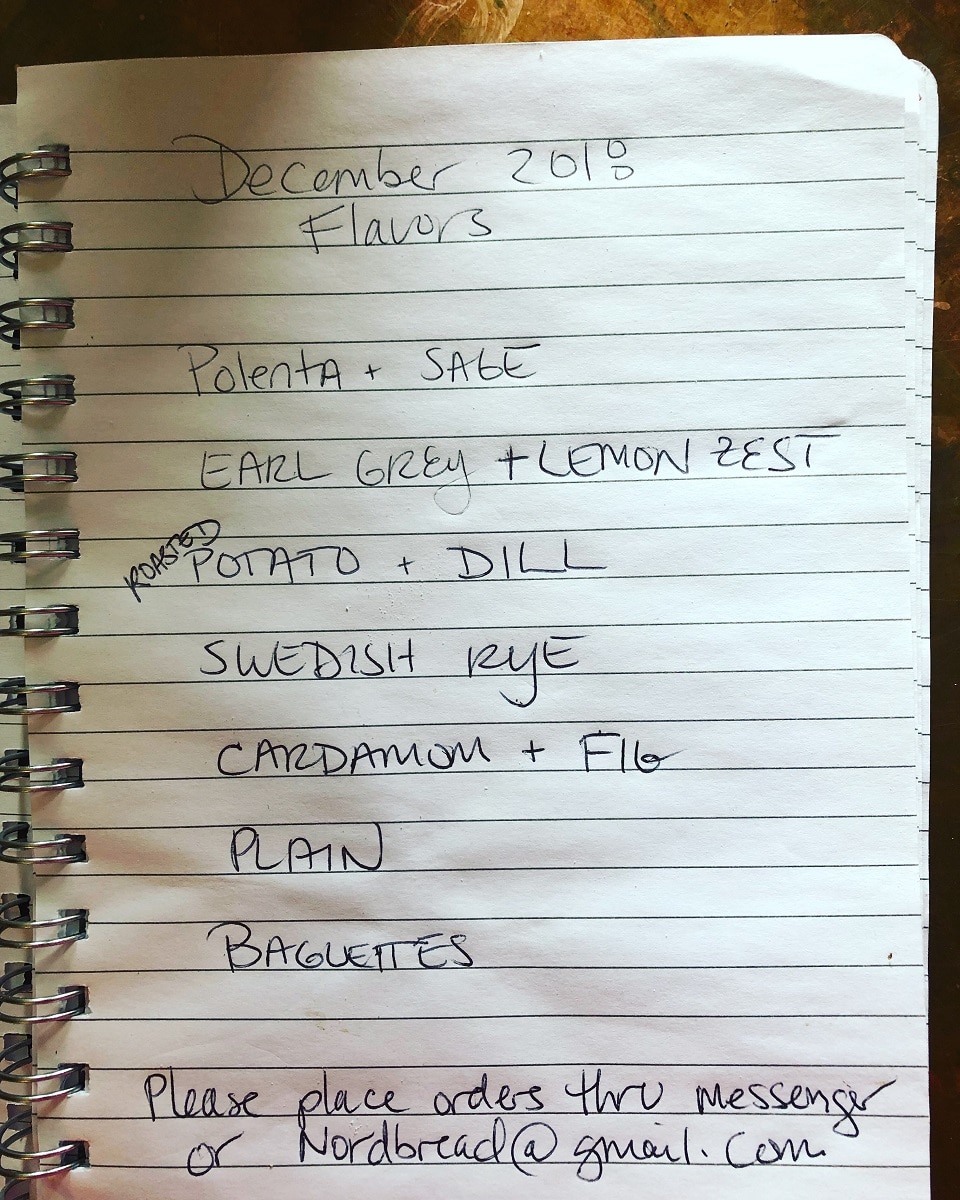 December 2018
Flavors
Polenta + SAGE
EARL GREy + LEMON ZEST
ROASTED POTATO + DILL
SWEDISH RyE
CARDAMOM + FIG
PLAIN
BAGUETTES
Please place orders thru messenger
or Nordbread@gmail.com